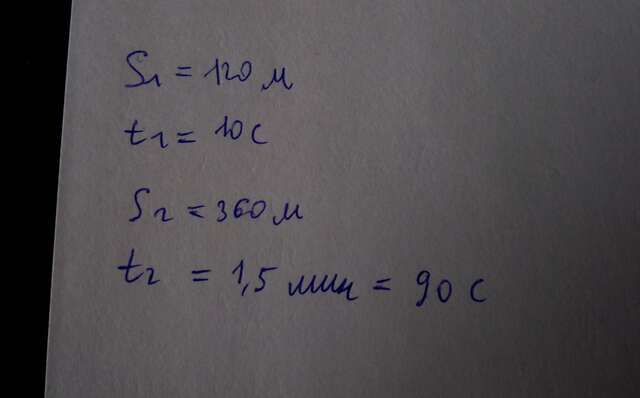 S₁ = 120 м
t₁ = 10 с
S₂ = 360 м
t₂ = 1,5 мин = 90 с